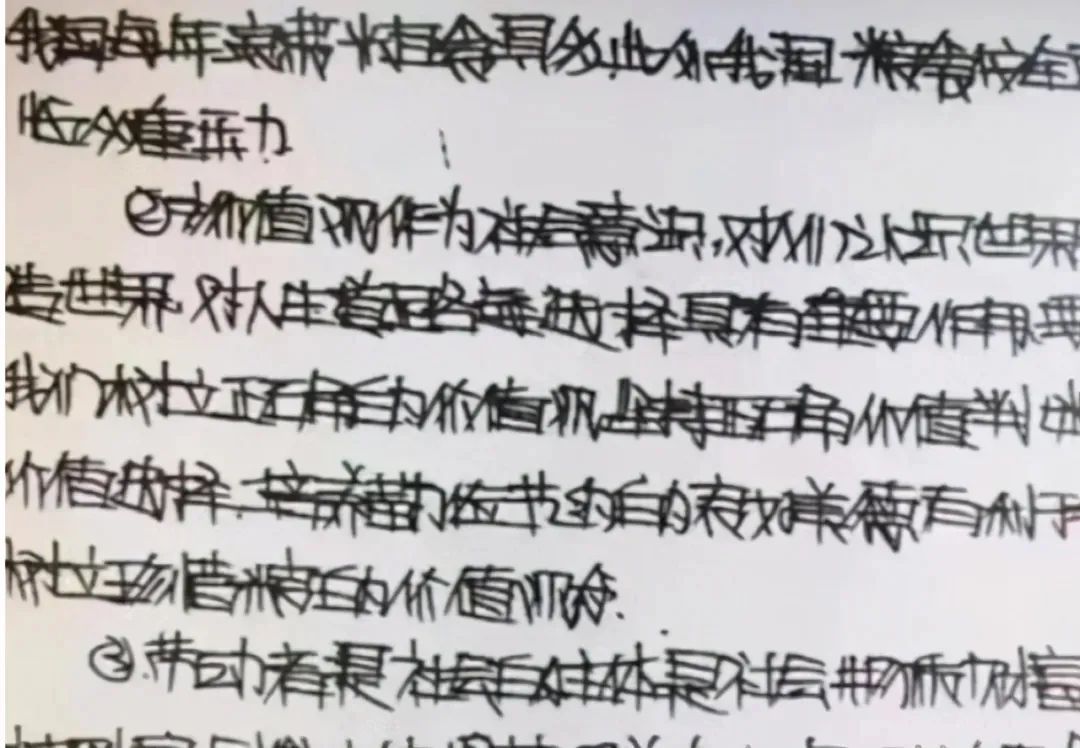 我国每年浪费粮食巨多,此外我国粮食安全
临众重压力.
②价值观作为社会意识,对人们认识世界
造世界,对人生道路每选择具有重要作用,要
我们树立正确的价值观,坚持正确价值判断
价值选择,培养勤俭节约的良好美德,有利于
树立珍惜粮食的价值观念.
③劳动者是社会的主体是社会物质财富